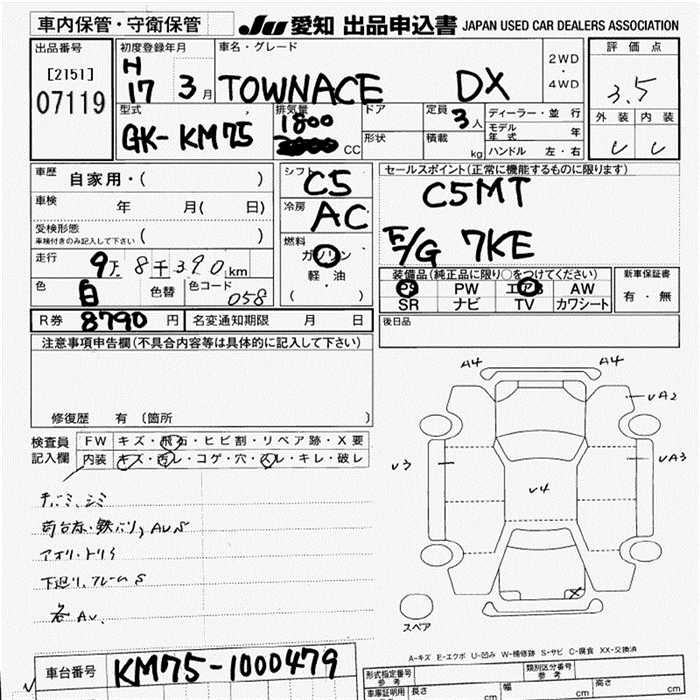 車内保管・守衛保管
JU 愛知 出品申込書 JAPAN USED CAR DEALERS ASSOCIATION
出品番号
[2151]
07119
初度登録年月
H
17 3月
車名・グレード
TOWNACE DX
2WD
・
4WD
評価点
3.5
外装 内装
型式
GK-KM75
排気量
1800
CC
ドア
形状
定員
3人
積載
kg
ディーラー・並行
モデル年式 年
ハンドル 左・右
車歴 自家用・( )
車検 年 月( 日)
受検形態
車検付きのみ記入して下さい ( )
走行 9万8千390km
色 白 色替 色コード 058
シフト C5
冷房 AC
燃料
ガソリン
軽・油
( )
セールスポイント(正常に機能するものに限ります)
C5MT
F/G 7KE
装備品(純正品に限り○をつけてください)
PS PW エアB AW
SR ナビ TV カワシート
新車保証書
有・無
後日品
R券 8790円 名変通知期限 月 日
注意事項申告欄(不具合内容等は具体的に記入して下さい)
修復歴 有〔箇所 〕
検査員
記入欄
FW キズ・飛石・ヒビ割・リペア跡・X要
内装 キズ・汚レ・コゲ・穴・スレ・キレ・破レ
アオリ・トリイ
下廻リ、フレームS
各AU
A4 A4
UA2
U3 UA3
U4
X
スペア
A-キズ E-エクボ U-凹み W-補修跡 S-サビ C-腐食 XX-交換済
車台番号 KM75-1000479
形式指定番号
参考
類別区分番号
参考
車庫証明用
長さ cm 幅 cm 高さ cm